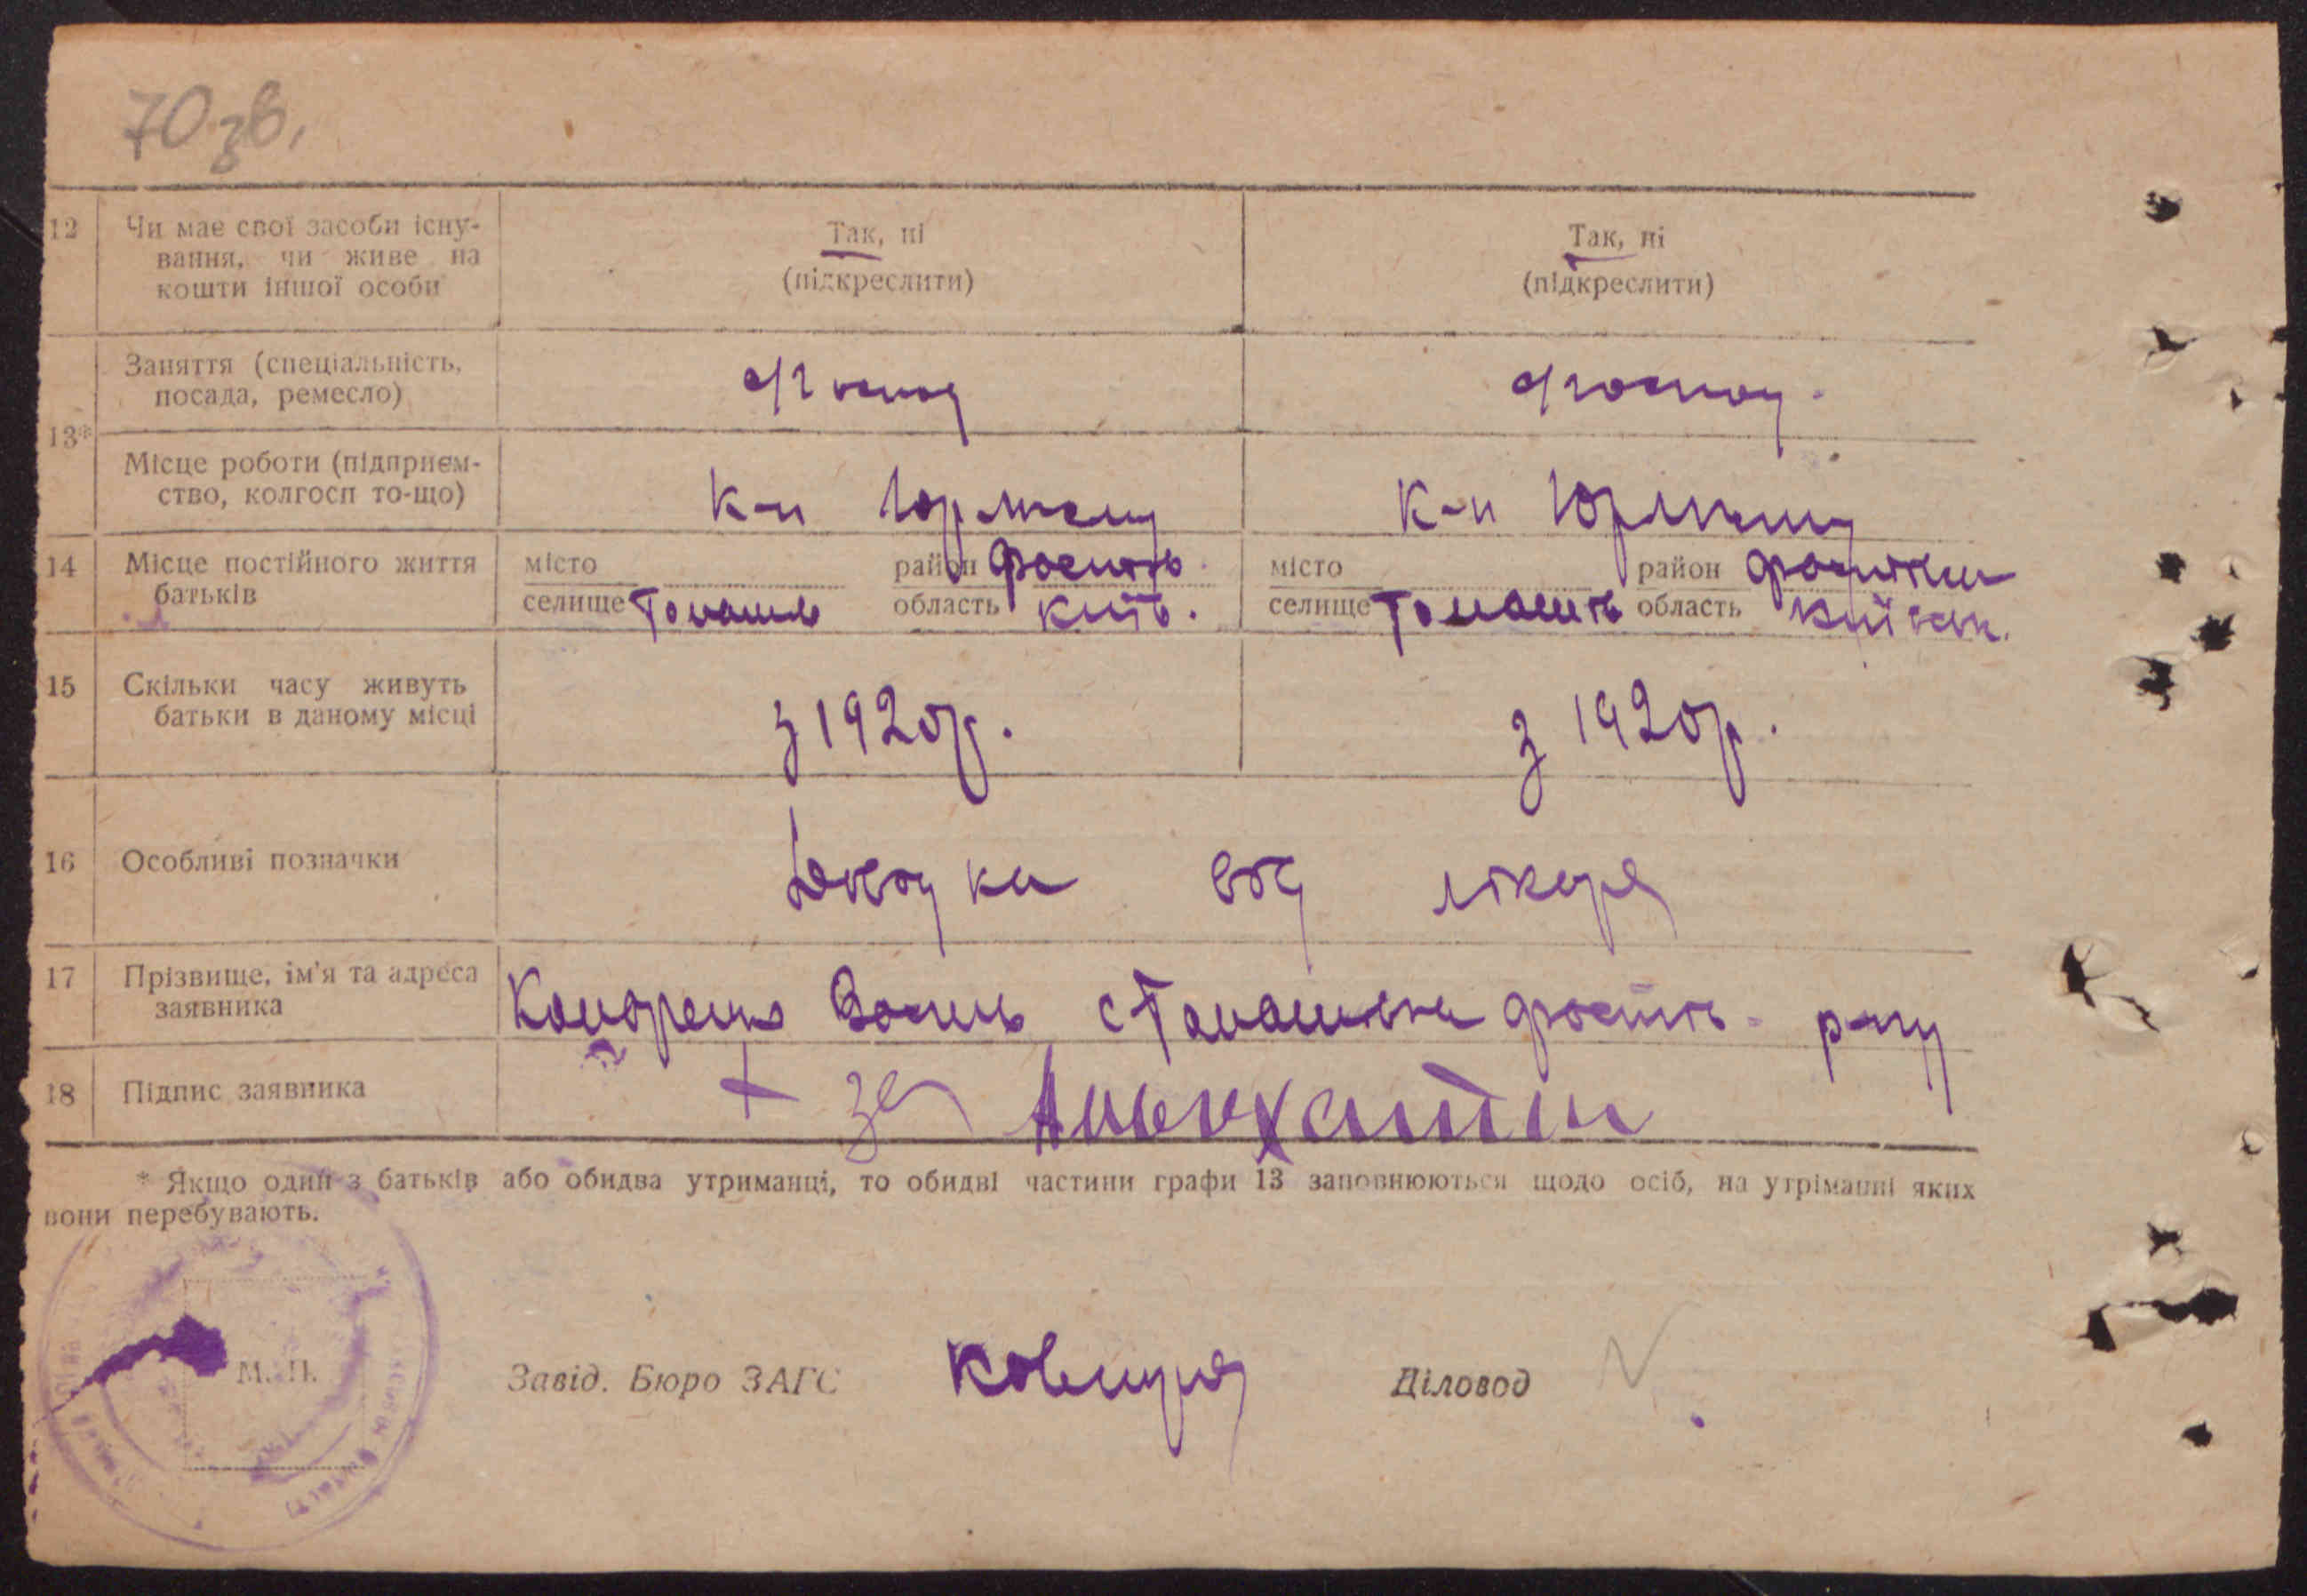 70 зв.
12 Чи має свої засоби існу-
вання, чи живе на
кошти іншої особи
Так, ні
(підкреслити)
Так, ні
(підкреслити)
13*
Заняття (спеціальність,
посада, ремесло)
Місце роботи (підприєм-
ство, колгосп то-що)
к-п
к-п
14 Місце постійного життя
батьків
місто
селище
район
область Київ.
місто
селище
район
область Київськ.
15 Скільки часу живуть
батьки в даному місці
з 1920 р.
з 1920 р.
16 Особливі позначки
Довідка від лікаря
17 Прізвище, ім'я та адреса
заявника
Василь с р-ну
18 Підпис заявника
+ за
* Якщо один з батьків або обидва утриманці, то обидві частини графи 13 заповнюються щодо осіб, на утріманні яких
вони перебувають.
М. П.
Завід. Бюро ЗАГС
Діловод